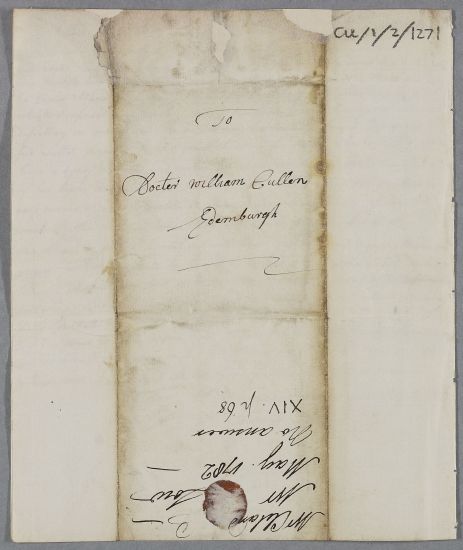 CUL/1/2/1271
To
Docter William Cullen
Edemburgh
Mr
May. 1782
No answer
XIV. p 68